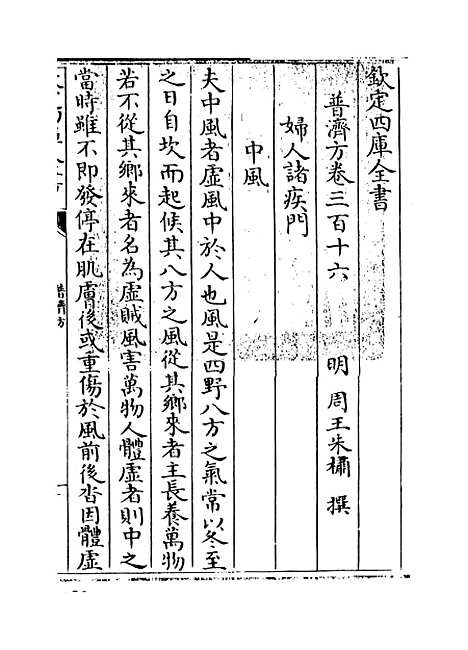 欽定四庫全書
普濟方卷三百十六　明　周王朱橚　撰
婦人諸疾門
中風
夫中風者虛風中於人也風是四野八方之氣常以冬至
之日自坎而起候其八方之風從其鄉來者主長養萬物
若不從其鄉來者名為虛賊風害萬物人體虛者則中之
當時雖不即發停在肌膚後或重傷於風前後沓因體虛
普濟方